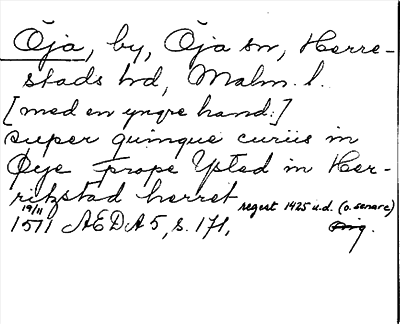 Öja, by, Öja sn, Herre-
stads hd, Malm. l.
[med en yngre hand:]
super quinque curiis in
Øye prope Ysted in Her-
ritzstad herret
19/11 regest 1425 u.d. (o. senare)
1511 ÆDA 5, s. 171,